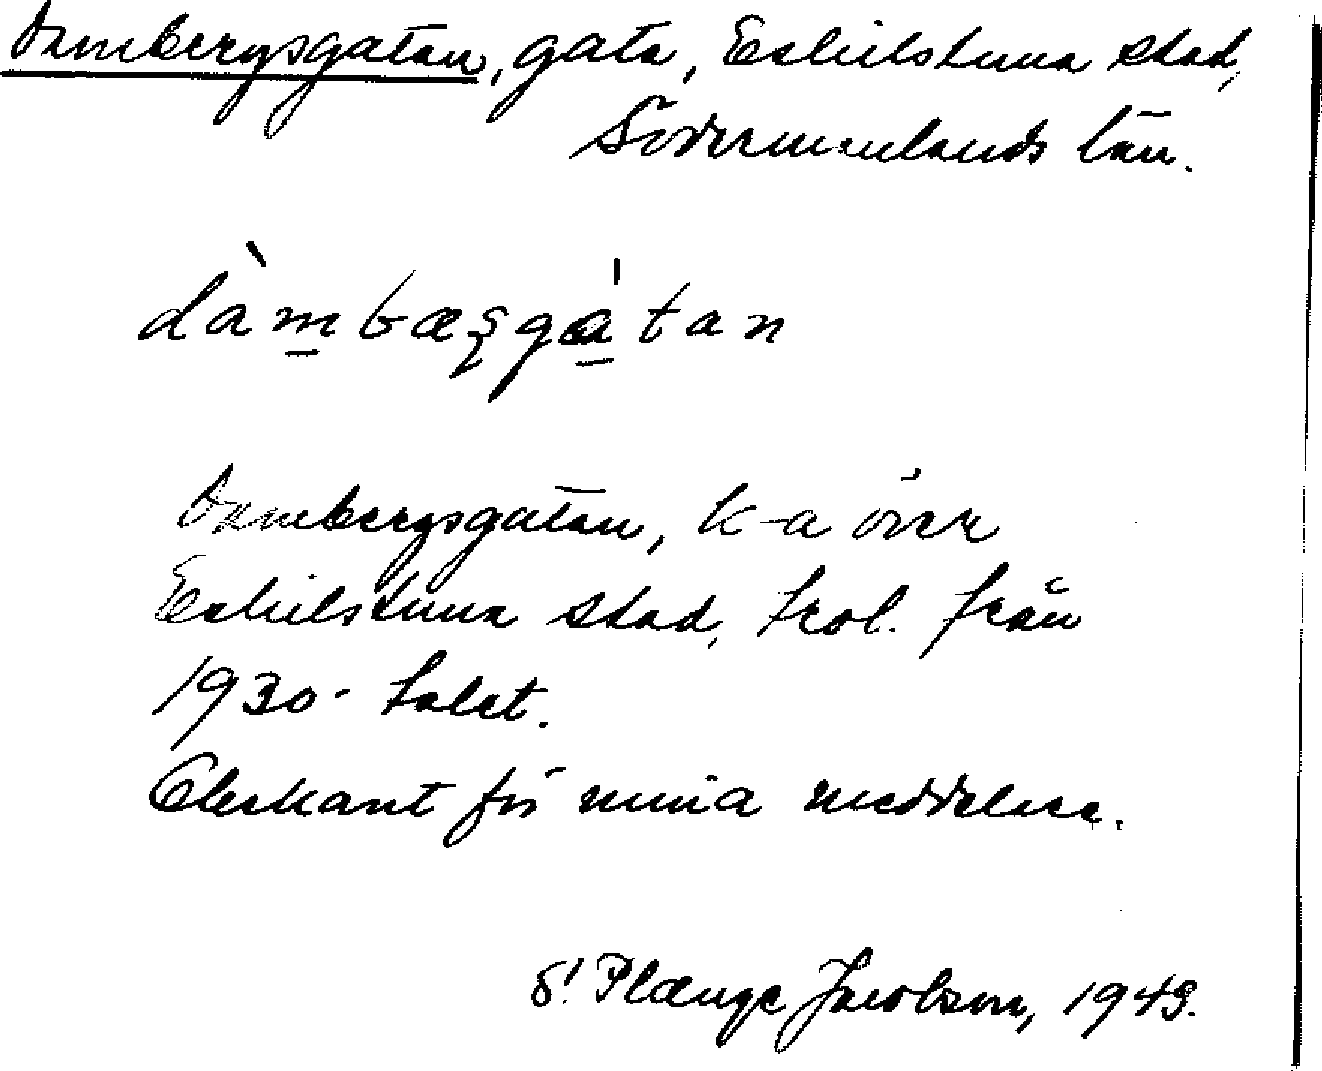 Dambergsgatan, gata, Eskilstuna stad,
Södermanlands län.
dàmbæșgàtan
Dambergsgatan, k-a över
Eskilstuna stad, trol. från
1930-talet.
Obekant för mina meddelare.
S! Plænge Jacobson, 1949.